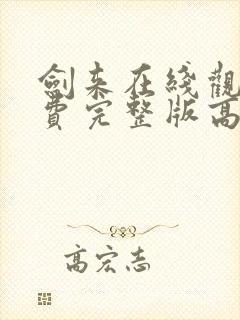 劍来在綫觀
費完整版高
高宏志